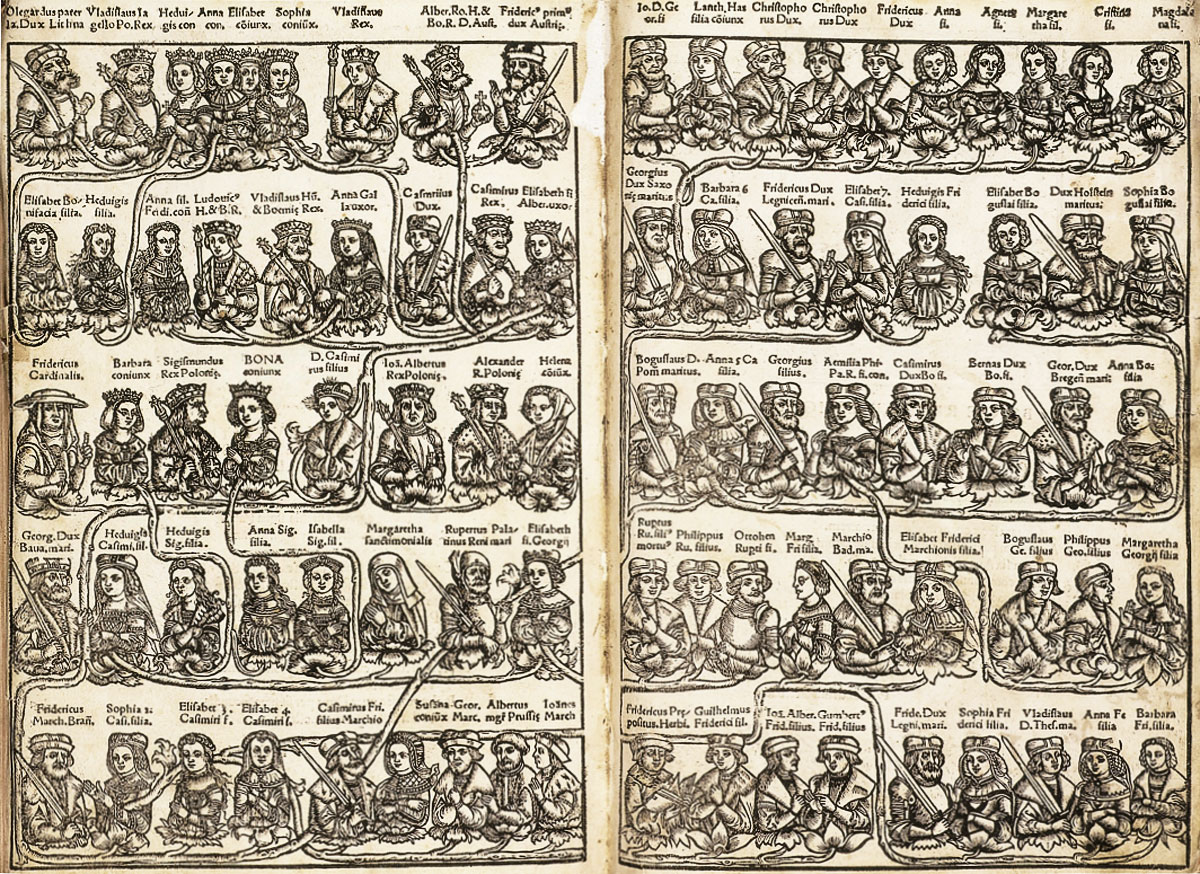 Olegardus pater Vladislaus Ia Hedui- Anna Elisabet Sophia Vladislaus Alber. Ro. H. & Frideric⁹ prim⁹
Ia. Dux Lithua gello Po. Rex gis con con. cōiunx. coniūx. Rex. Bo. R. D. Aust. dux Austrię.
Elisabet Bo- Heduigis Anna fil. Ludouic⁹ Vladislaus Hū. Anna Gal Casmirius Casimirus Elisabeth fi
nifacia filia. filia. Fridi. con H. & B. R. & Boemię Rex. la uxor. Dux. Rex. Alber. uxor
Fridericus Barbara Sigismundus BONA D. Casimi Ioā. Albertus Alexander Helena
Cardinalis. coniunx Rex Polonię. coniunx rus filius Rex Polonię. R. Polonię cōiūx.
Georg. Dux Heduigis Heduigis Anna Sig. Isabella Margaretha Rupertus Pala- Elisabeth
Baua. mari. Casimi. fil. Sig. filia. filia Sig. fil. sanctimonialis tinus Reni mari fi. Georgij
Fridericus Sophia 2. Elisabe 3. Elisabet 4. Casimirus Fri. Susana Geor. Albertus Ioānes
March. Bran. Casi. filia. Casimiri f. Casimiri f. filius Marchio coniūx Marc. mgr̄ Prussię March
Io. D. Ge Lanth. Has Christopho Christopho Fridericus Anna Agnes Margare Cristina Magdale
or. fi filia cōiunx rus Dux. rus Dux Dux fi. fi. tha fil. fi. na fi.
Georgius
Dux Saxo Barbara 6 Fridericus Dux Elisabe 7. Heduigis Fri Elisabe Bo Dux Holstein Sophia Bo
nię maritus Ca. filia. Legnicen̄. mari. Casi. filia. derici filia guslai filia. maritus. guslai filia.
Boguslaus D. Anna 5 Ca Georgius Aemilia Phi- Casimirus Bernas Dux Geor. Dux Anna Bo:
Pom̄ maritus. filia. filius. Pa. R. fi. con. Dux Bo fi. Bo. fi. Bregen̄ mari: filia
Ruptus
Ru. fili⁹ Philippus Ottohen Marg Marchio Elisabet Friderici Boguslaus Philippus Margaretha
mortu⁹ Ru. filius. Rupti fi. Fri filia Bad. ma. Marchionis filia. Ge. filius Geo. filius Georgij filia
Fridericus Pre- Guilhelmus Ioā. Alber. Gumbert⁹ Fride. Dux Sophia Fri Vladislaus Anna Fe Barbara
positus. Herbi. Friderici fil. Frid. filius. Frid. filius Legni. mari. derici filia. D. Thes. ma. filia Fri. filia.